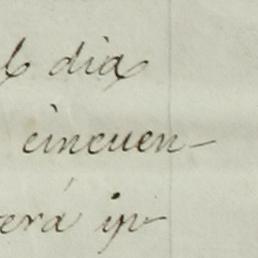 l dia
cincuen-
erá in-